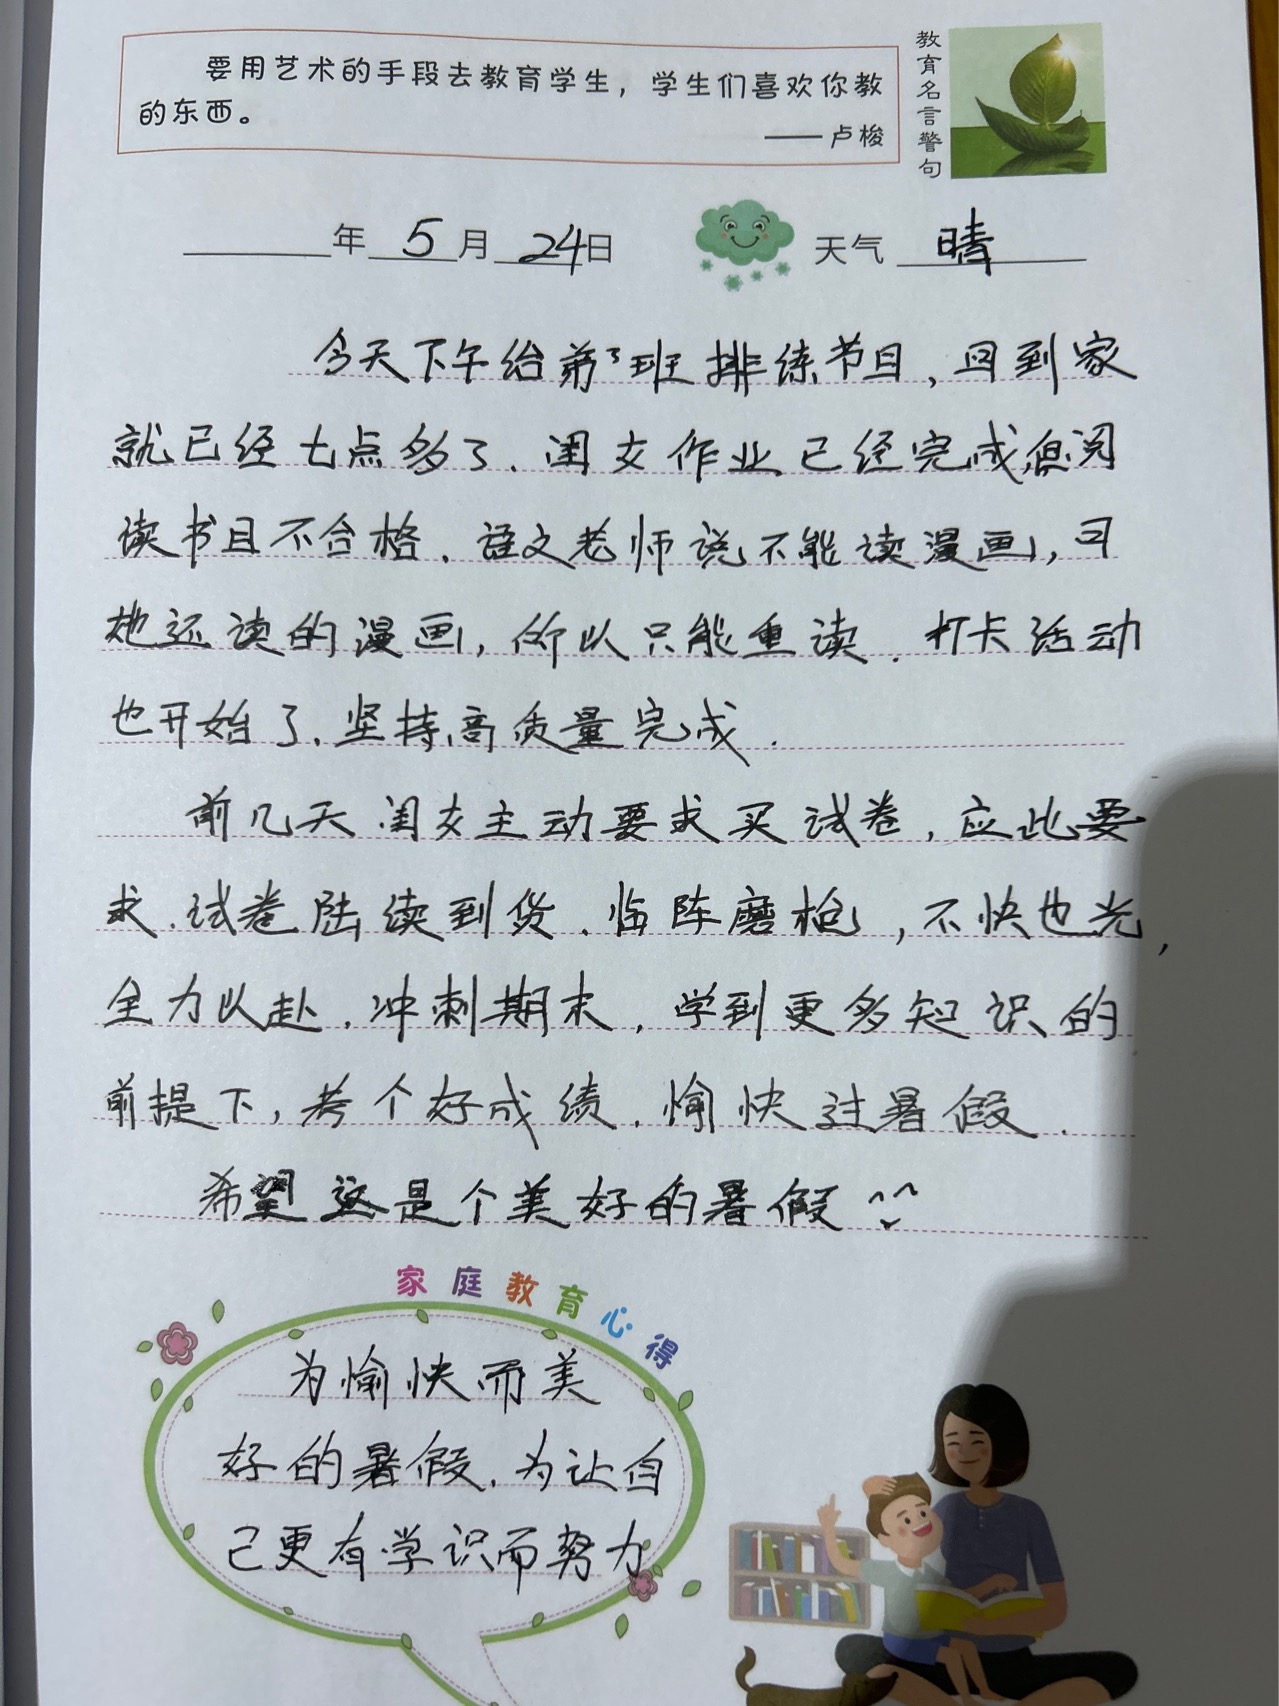 要用艺术的手段去教育学生，学生们喜欢你教
的东西。
——卢梭
教育名言警句
年 5 月 24日 天气 晴
今天下午给第3班排练节目，回到家
就已经七点多了．闺女作业已经完成，但阅
读书目不合格．语文老师说不能读漫画，
她还读的漫画，所以只能重读．打卡活动
也开始了．坚持高质量完成．
前几天闺女主动要求买试卷，应此要
求．试卷陆续到货．临阵磨枪，不快也光，
全力以赴．冲刺期末，学到更多知识的
前提下，考个好成绩．愉快过暑假．
希望这是个美好的暑假
家庭教育心得
为愉快而美
好的暑假．为让自
己更有学识而努力